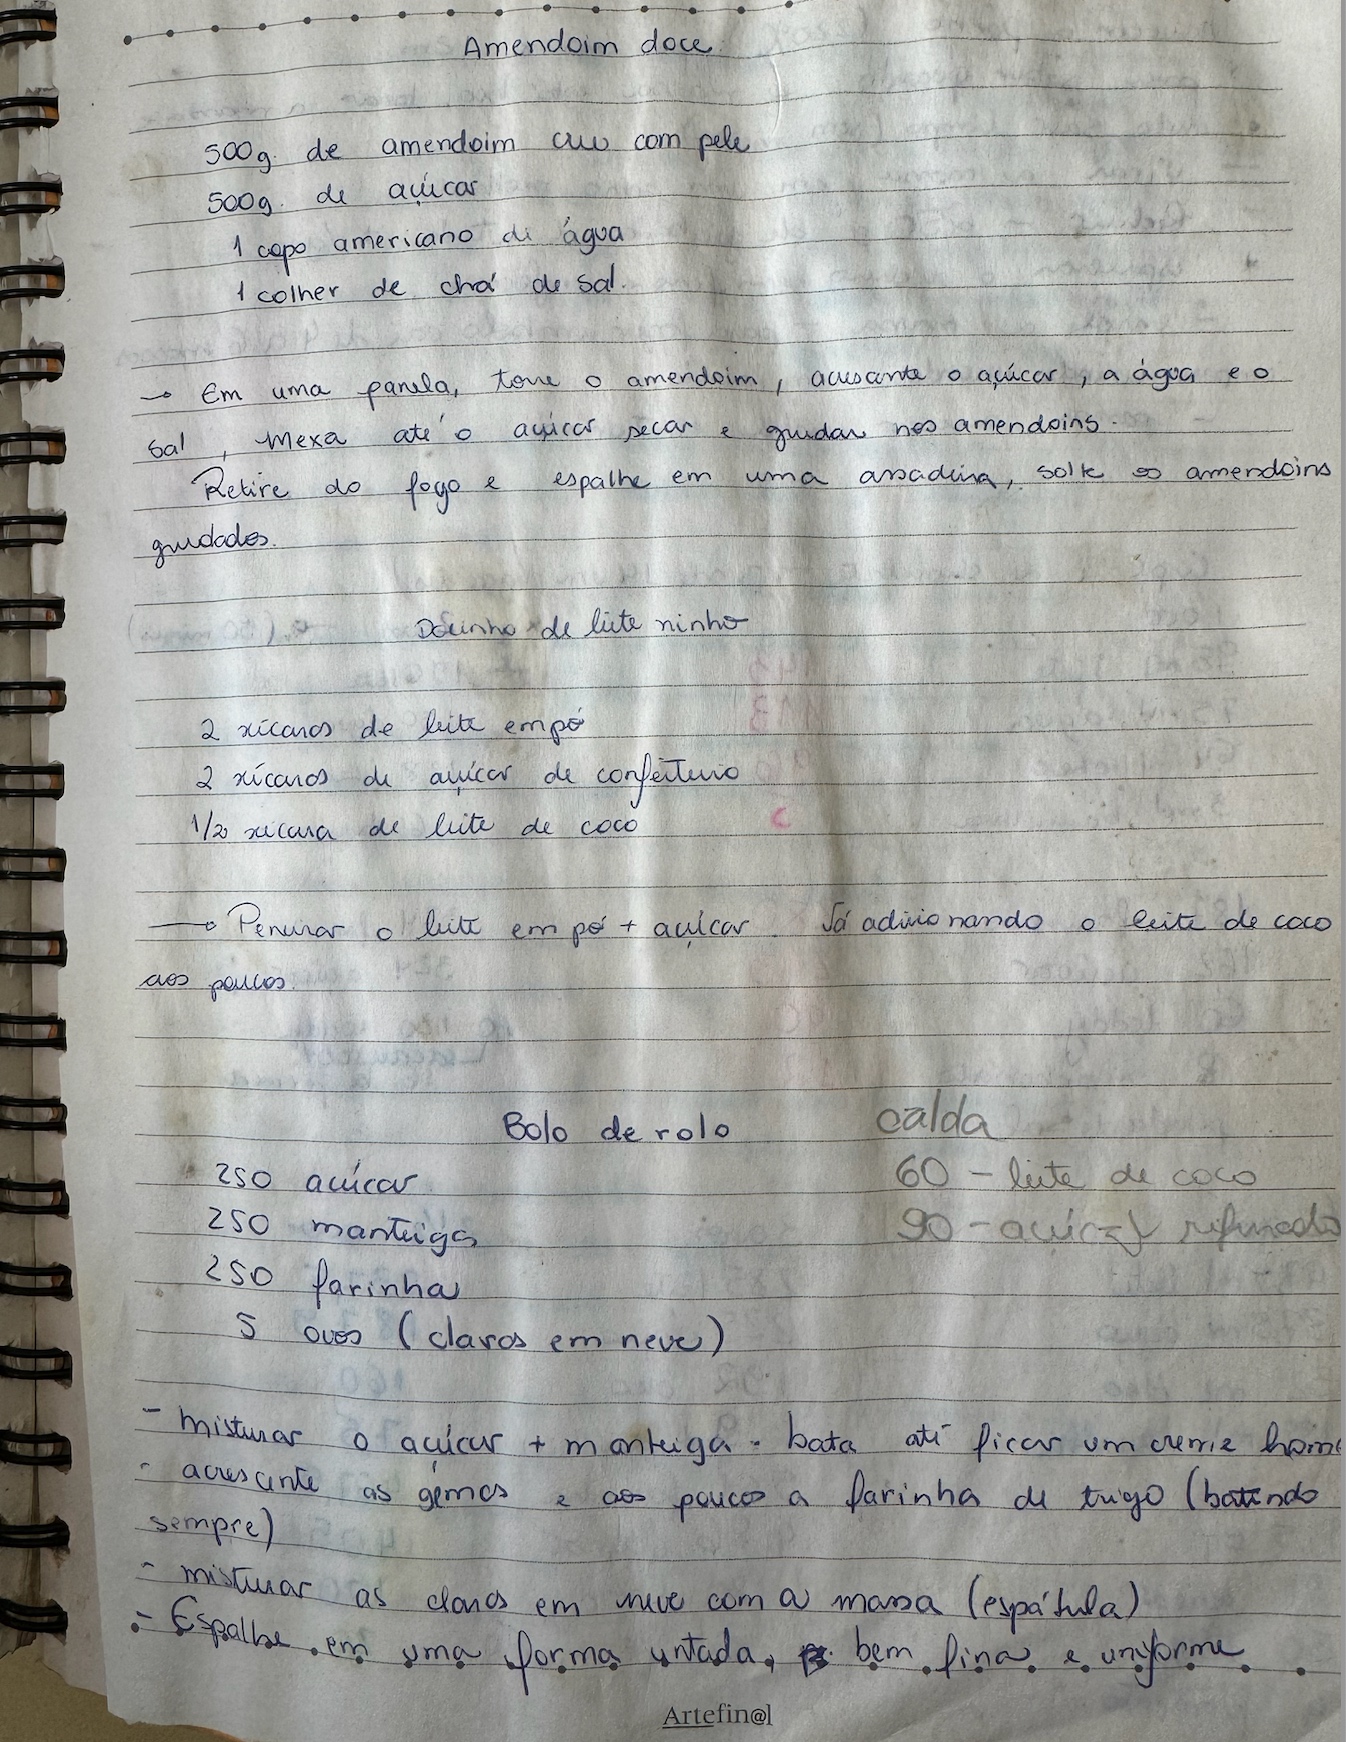 Amendoim doce
500g. de amendoim cru com pele
500g. de açúcar
1 copo americano de água
1 colher de chá de sal.
→ Em uma panela, torre o amendoim, acrescente o açúcar, a água e o
sal, mexa até o açúcar secar e grudar nos amendoins.
Retire do fogo e espalhe em uma assadeira, solte os amendoins
grudados.
Docinho de leite ninho
2 xícaras de leite em pó
2 xícaras de açúcar de confeiteiro
1/2 xícara de leite de coco
→ Peneirar o leite em pó + açúcar. Vá adicionando o leite de coco
aos poucos.
Bolo de rolo
250 açúcar
250 manteiga
250 farinha
5 ovos (claras em neve)
calda
60 - leite de coco
90 - açúcar refinado
- misturar o açúcar + manteiga - bata até ficar um creme home
- acrescente as gemas e aos poucos a farinha de trigo (batendo
sempre)
- misturar as claras em neve com a massa (espátula)
- Espalhe em uma forma untada, bem fina e uniforme
Artefin@l